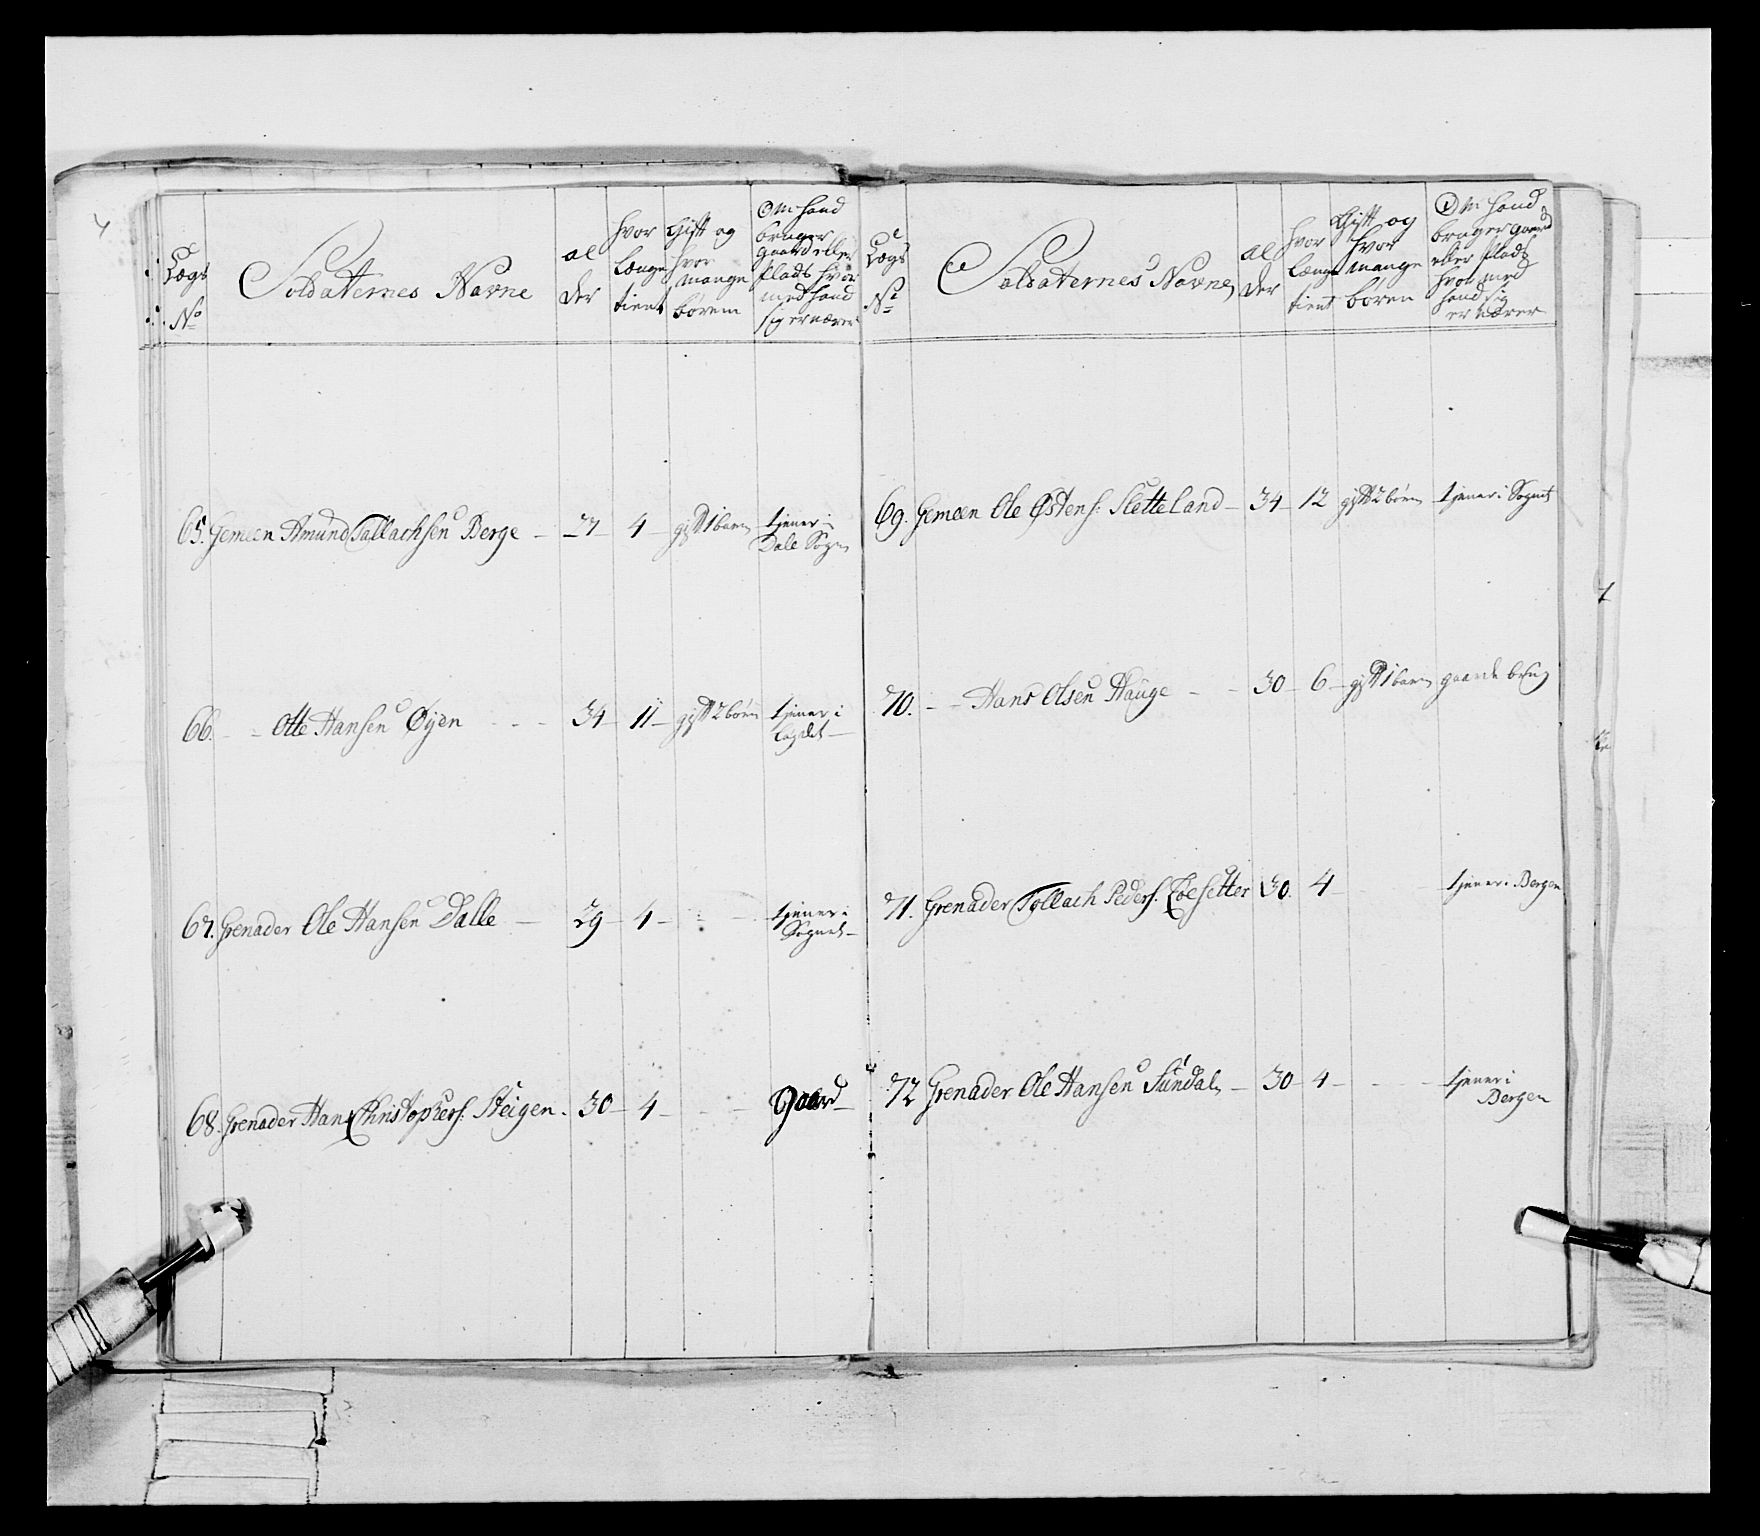 Lægs
No
Soldaternes Navne
al
der
hvor
længe
tient
Gift og
hvor
mange
børen
Om hand
bruger
gaard eller
Plads hvor
med hand
sig ernærer
65. Gemeen Amund Tallachsen Berge — 27 — 4 — gift 1 barn tjener i
Dale Sogn
66. - - Otte Hansen Øyen - - - 34 — 11 — gift 2 børn tjener i
67. Grenader Ole Hansen Dalle — 29 — 4 — - - tjener i
Sognet —
68. Grenader Hans Christophers. Steigen. 30 — 4 — - - Gaard —
Lægs
No
Soldaternes Navne
al
der
hvor
længe
tient
Gift og
hvor
mange
børen
Om hand
bruger gaard
eller Plads
hvor med
hand sig
ernærer
69. Gemeen Ole Østens. Sletteland — 34 — 12 gift 2 børn tjener i Sognet
70. - - Hans Olsen Hauge - - 30 — 6 — gift 1 barn gaarde brug
71. Grenader Tollach Peders. Loesetter 30. 4 — - tjener i Bergen
72 Grenader Ole Hansen Sundal — 30 — 4 — - - tjener i
Bergen